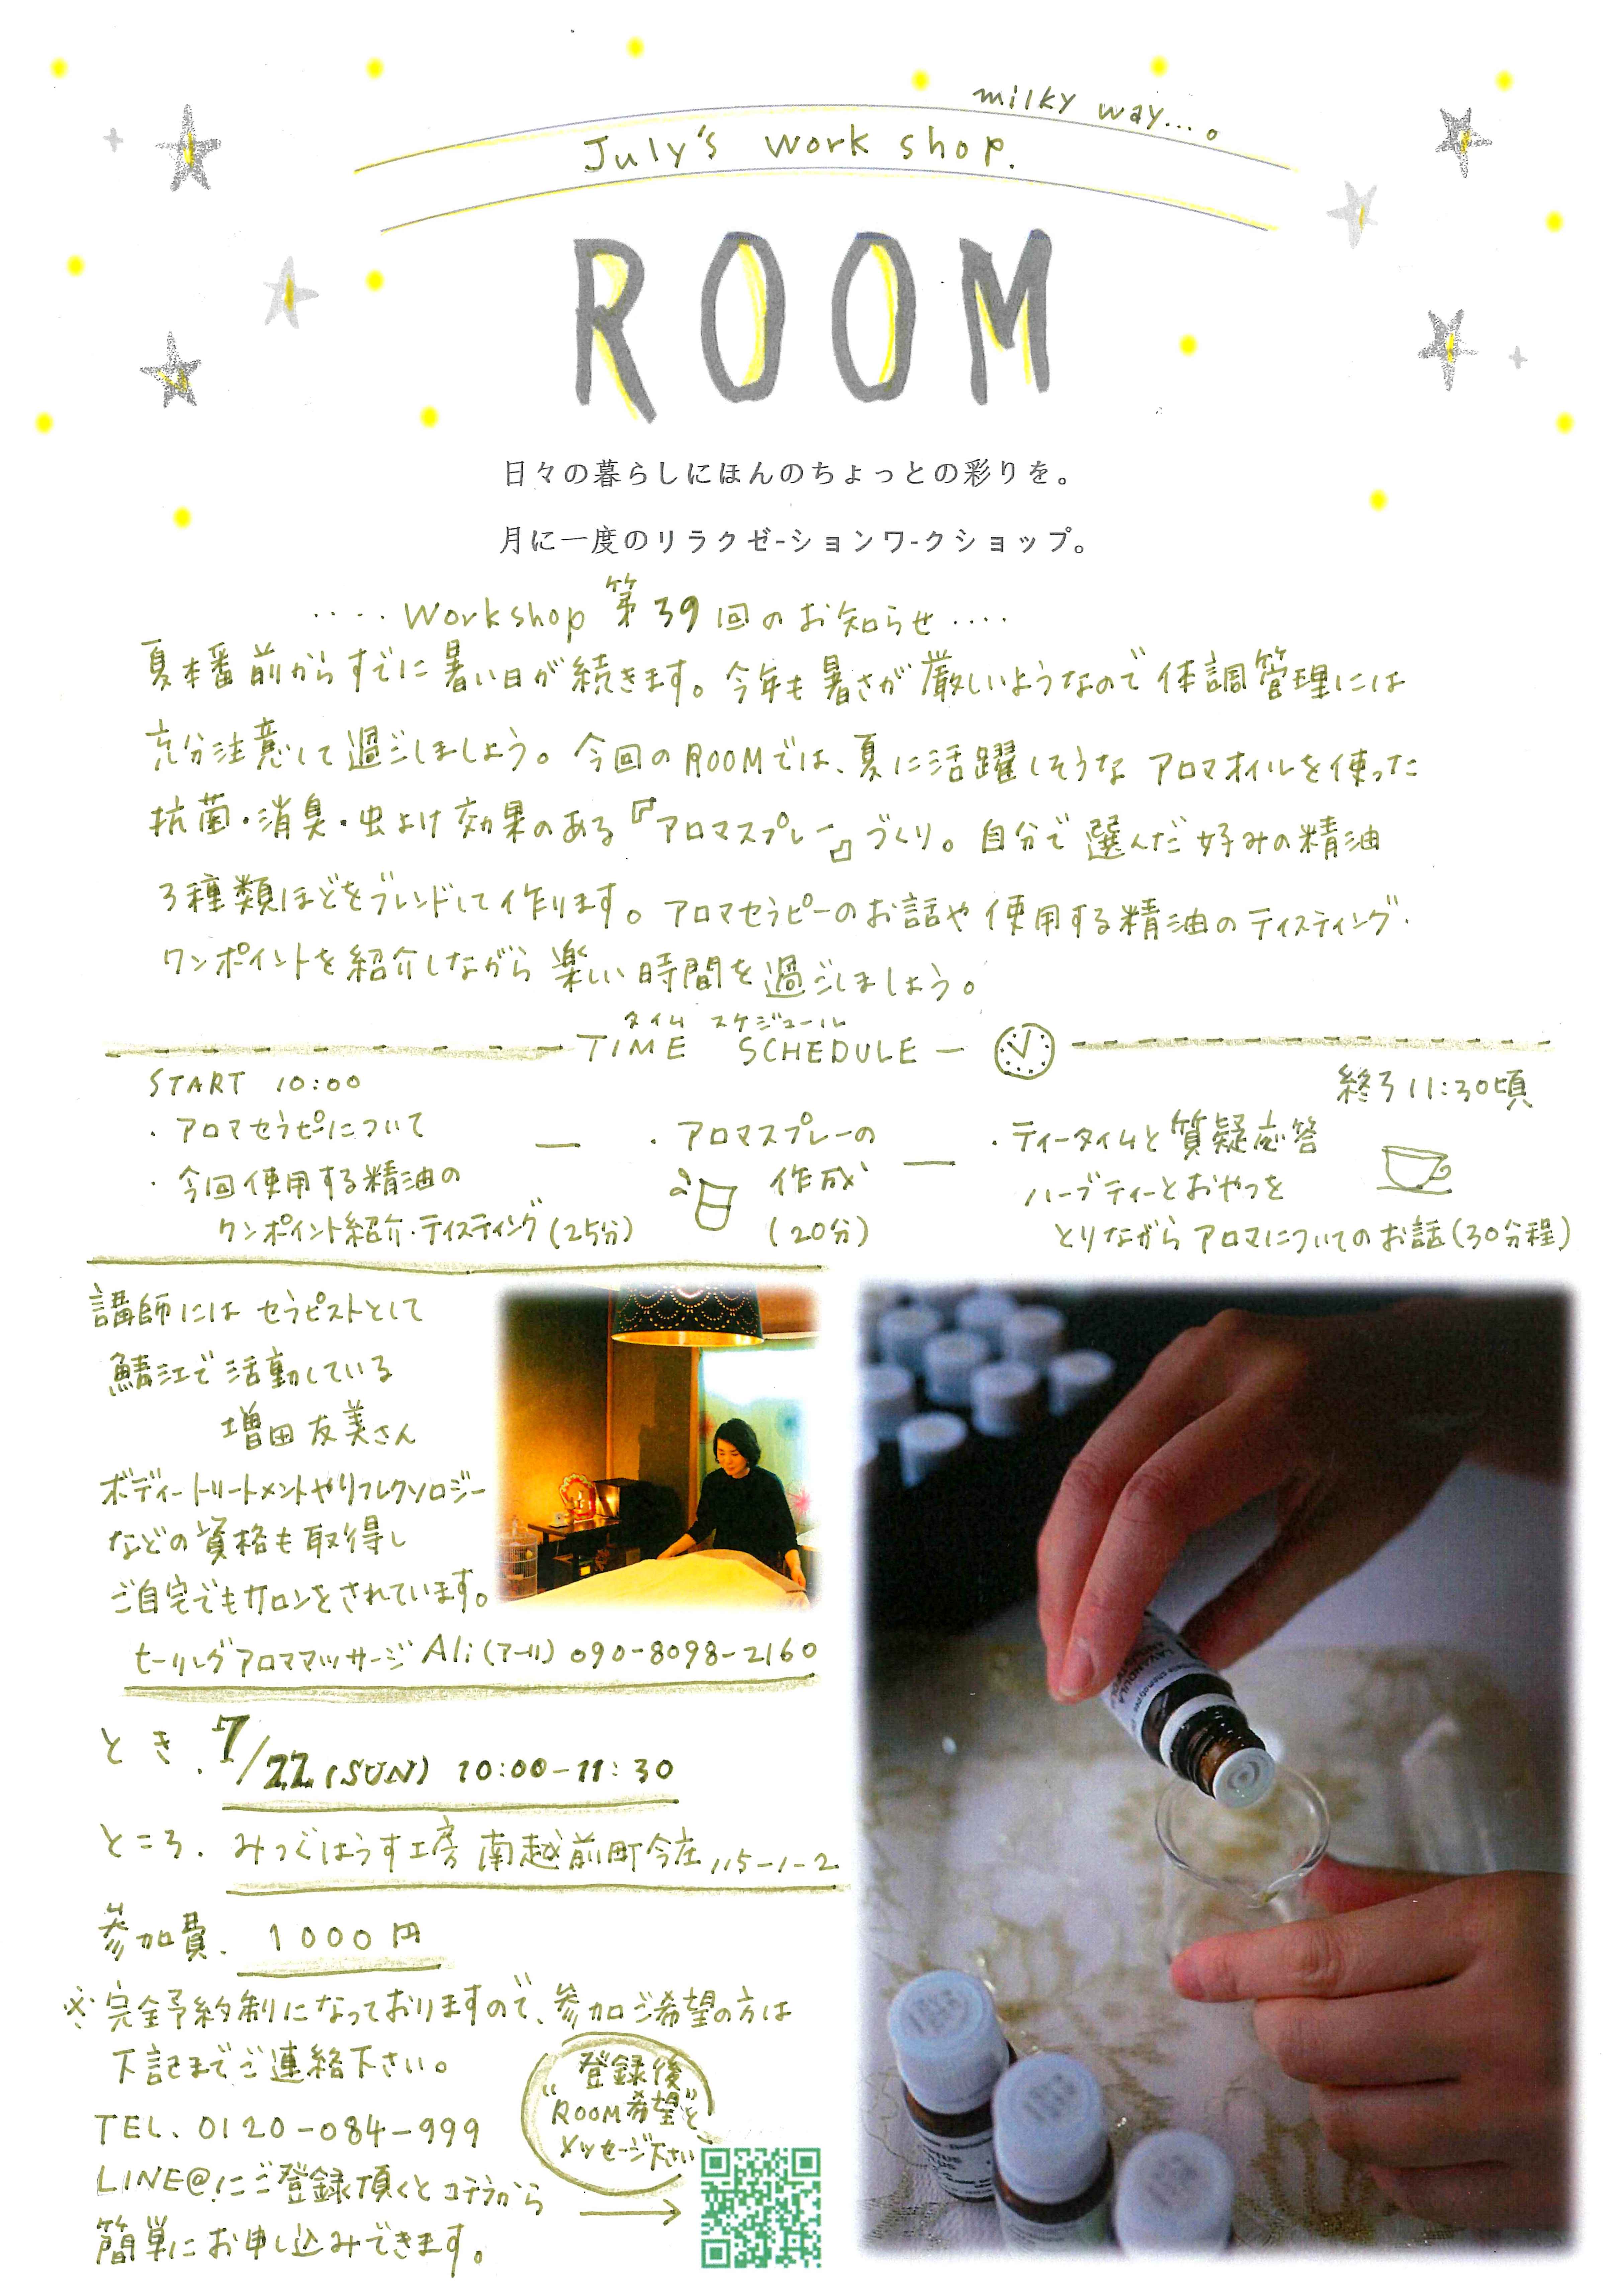 milky way...。
July's work shop.
ROOM
日々の暮らしにほんのちょっとの彩りを。
月に一度のリラクゼ-ションワ-クショップ。
････Workshop 第39回のお知らせ････
夏本番前からすでに暑い日が続きます。今年も暑さが厳しいようなので体調管理には
充分注意して過ごしましょう。今回のROOMでは、夏に活躍しそうなアロマオイルを使った
抗菌・消臭・虫よけ効果のある『アロマスプレー』づくり。自分で選んだ好みの精油
3種類ほどをブレンドして作ります。アロマセラピーのお話や使用する精油のティスティング・
ワンポイントを紹介しながら楽しい時間を過ごしましょう。
タイム スケジュール
TIME SCHEDULE
START 10:00
終了11:30頃
・アロマセラピーについて
・今回使用する精油の
ワンポイント紹介・ティスティング(25分)
・アロマスプレーの
作成
(20分)
・ティータイムと質疑応答
ハーブティーとおやつを
とりながらアロマについてのお話(30分程)
講師にはセラピストとして
鯖江で活動している
増田友美さん
ボディートリートメントやリフレクソロジー
などの資格も取得し
ご自宅でもサロンをされています。
ヒーリングアロママッサージAli(アーリ) 090-8098-2160
とき. 7/22(SUN) 10:00-11:30
ところ. みつぐはうす工房 南越前町今庄115-1-2
参加費. 1000円
※完全予約制になっておりますので、参加ご希望の方は
下記までご連絡下さい。
TEL. 0120-084-999
LINE@にご登録頂くとコチラから
簡単にお申し込みできます。
登録後
"ROOM希望"と
メッセージ下さい
LAVANDULA